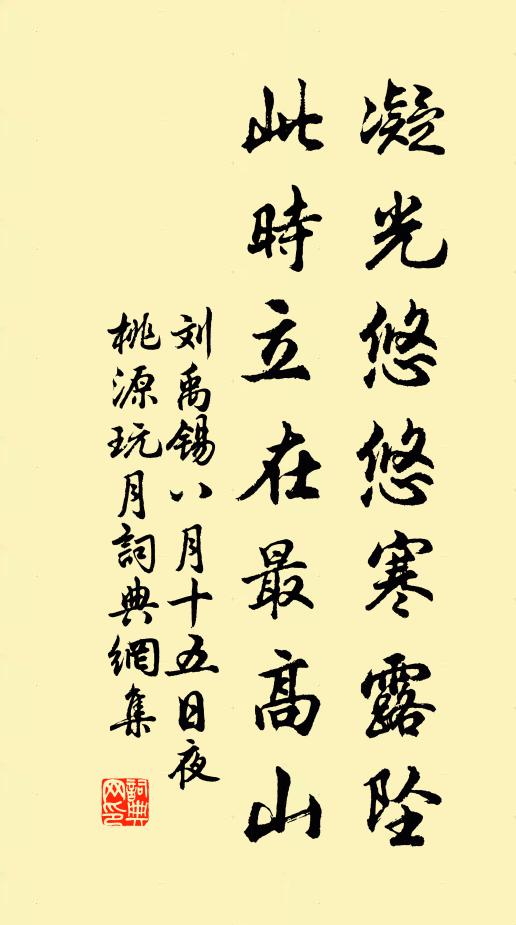 凝光悠悠寒露坠
此時立在最高山
刘禹锡八月十五日夜
桃源玩月詞典網集
詞典网印